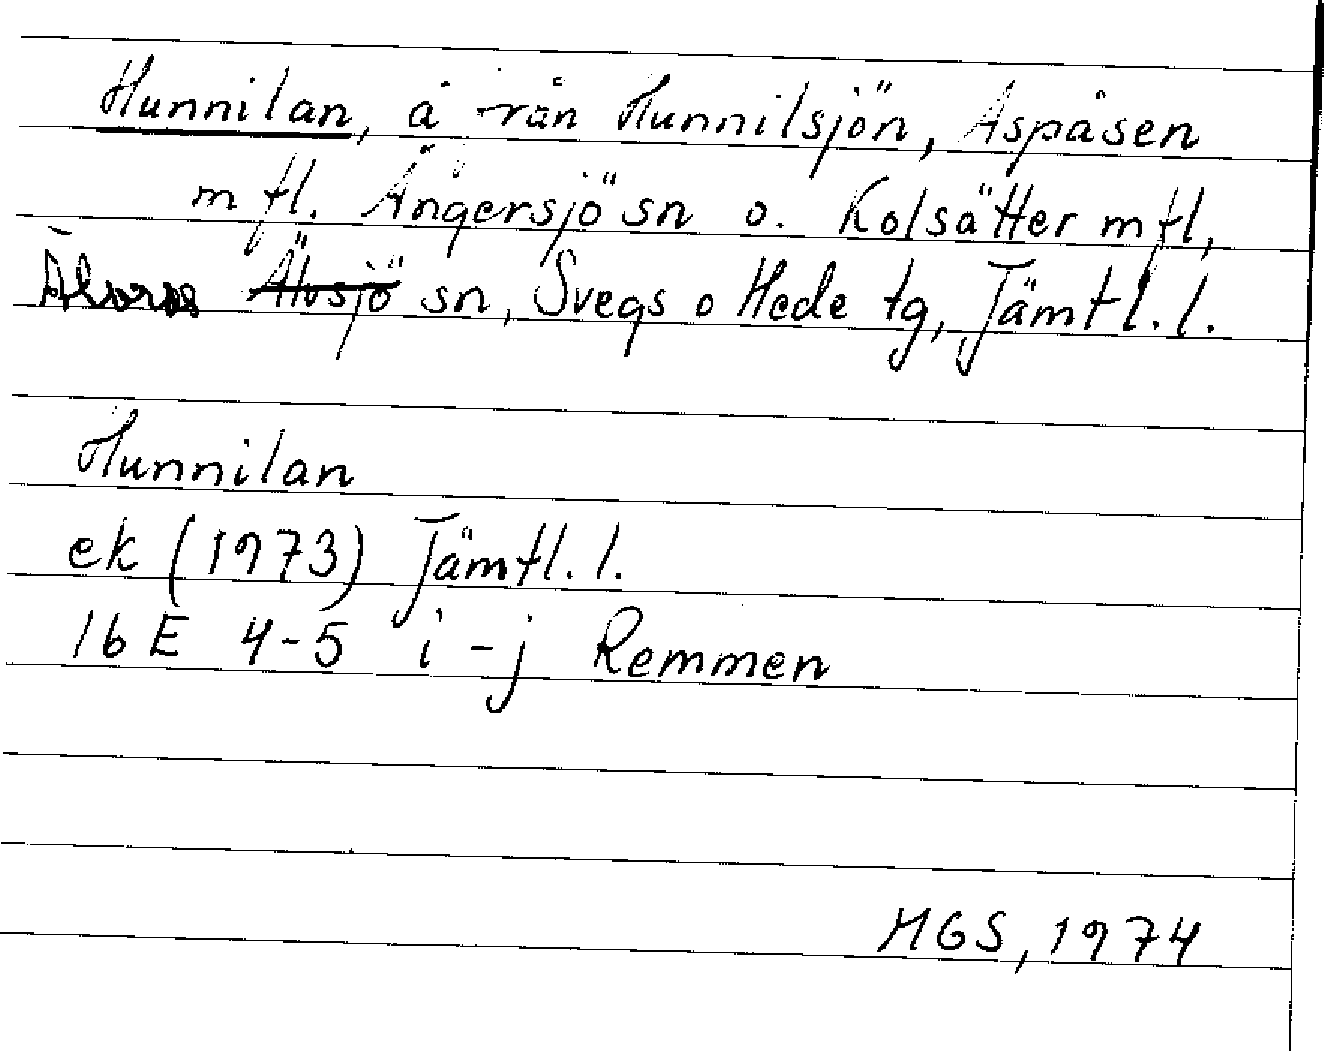 Hunnilan, å från Hunnilsjön, Aspåsen
m fl. Ängersjö sn o. Kolsätter m fl,
Älvros Älvsjö sn, Svegs o Hede tg, Jämtl. l.
Hunnilan
ek (1973) Jämtl. l.
16 E 4-5 i - j Remmen
MGS, 1974